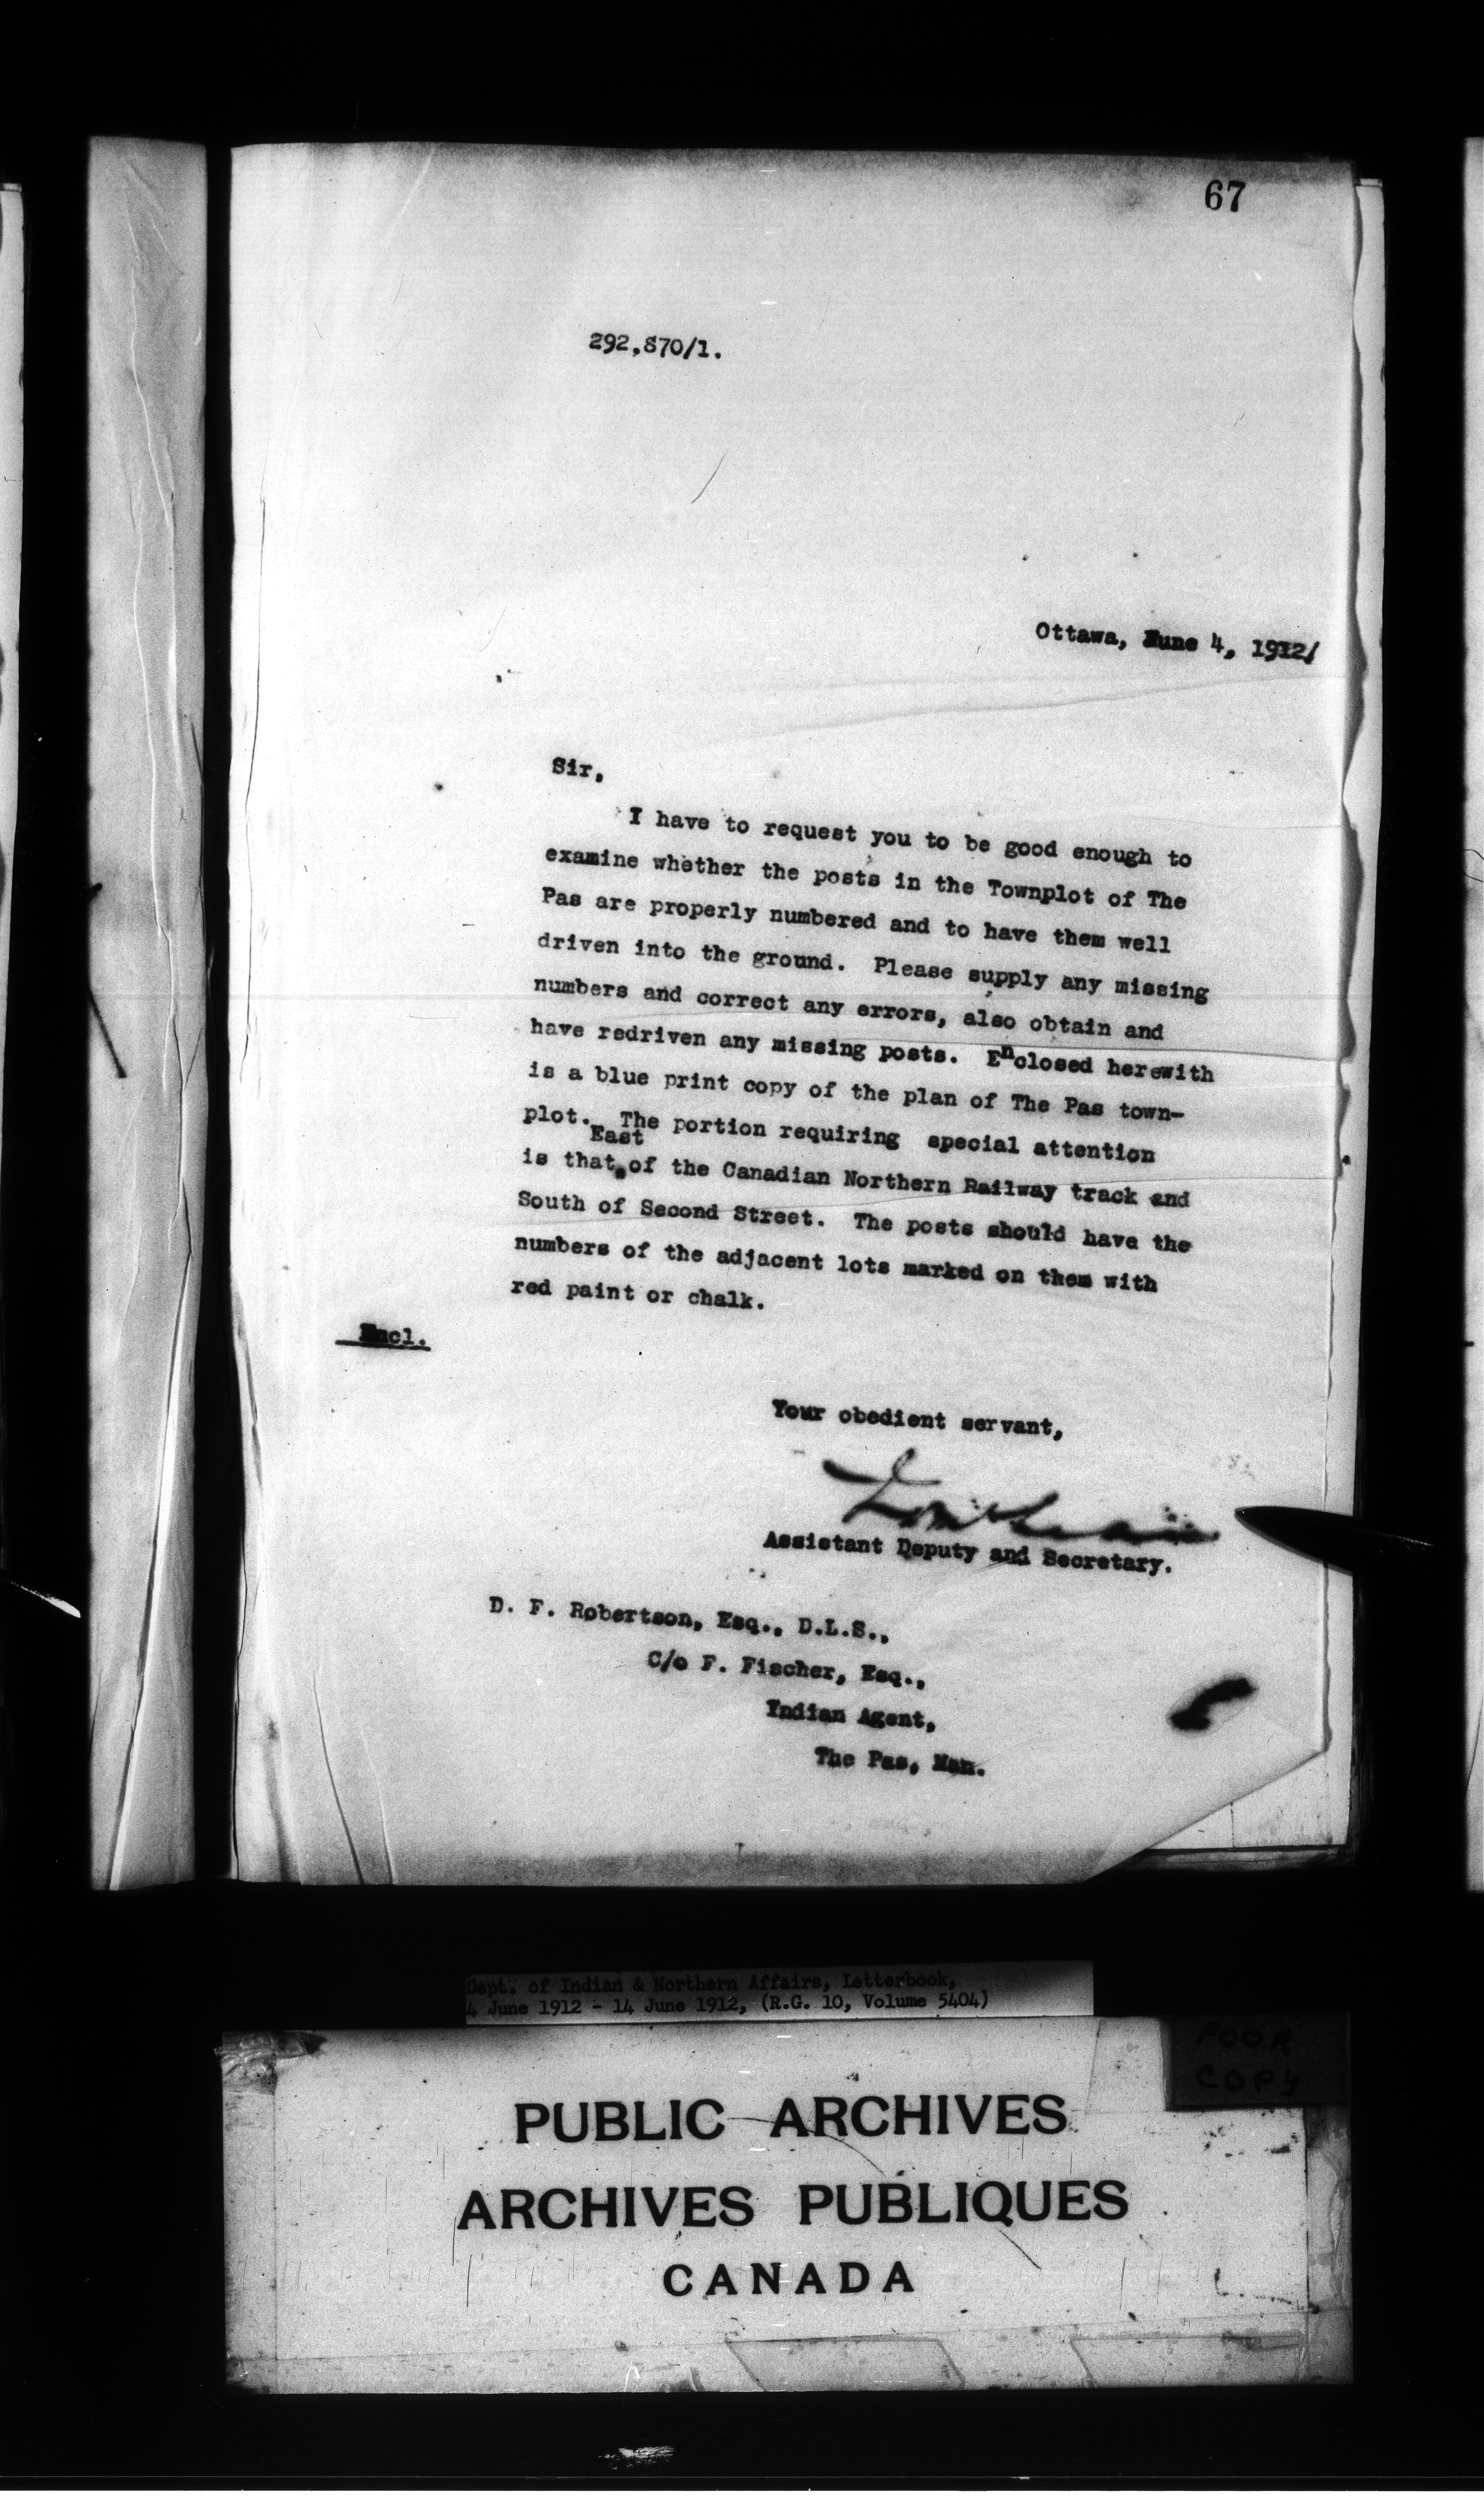 67
292,870/1.
Ottawa, June 4, 1912/
Sir,
I have to request you to be good enough to
examine whether the posts in the Townplot of The
Pas are properly numbered and to have them well
driven into the ground. Please supply any missing
numbers and correct any errors, also obtain and
have redriven any missing posts. Enclosed herewith
is a blue print copy of the plan of The Pas town-
plot. The portion requiring special attention
East
is that of the Canadian Northern Railway track and
South of Second Street. The posts should have the
numbers of the adjacent lots marked on them with
red paint or chalk.
Encl.
Your obedient servant,
Assistant Deputy and Secretary.
D. F. Robertson, Esq., D.L.S.,
C/o F. Fischer, Esq.,
Indian Agent,
The Pas, Man.
Dept. of Indian & Northern Affairs, Letterbook,
4 June 1912 - 14 June 1912, (R.G. 10, Volume 5404)
POOR
COPY
PUBLIC ARCHIVES
ARCHIVES PUBLIQUES
CANADA